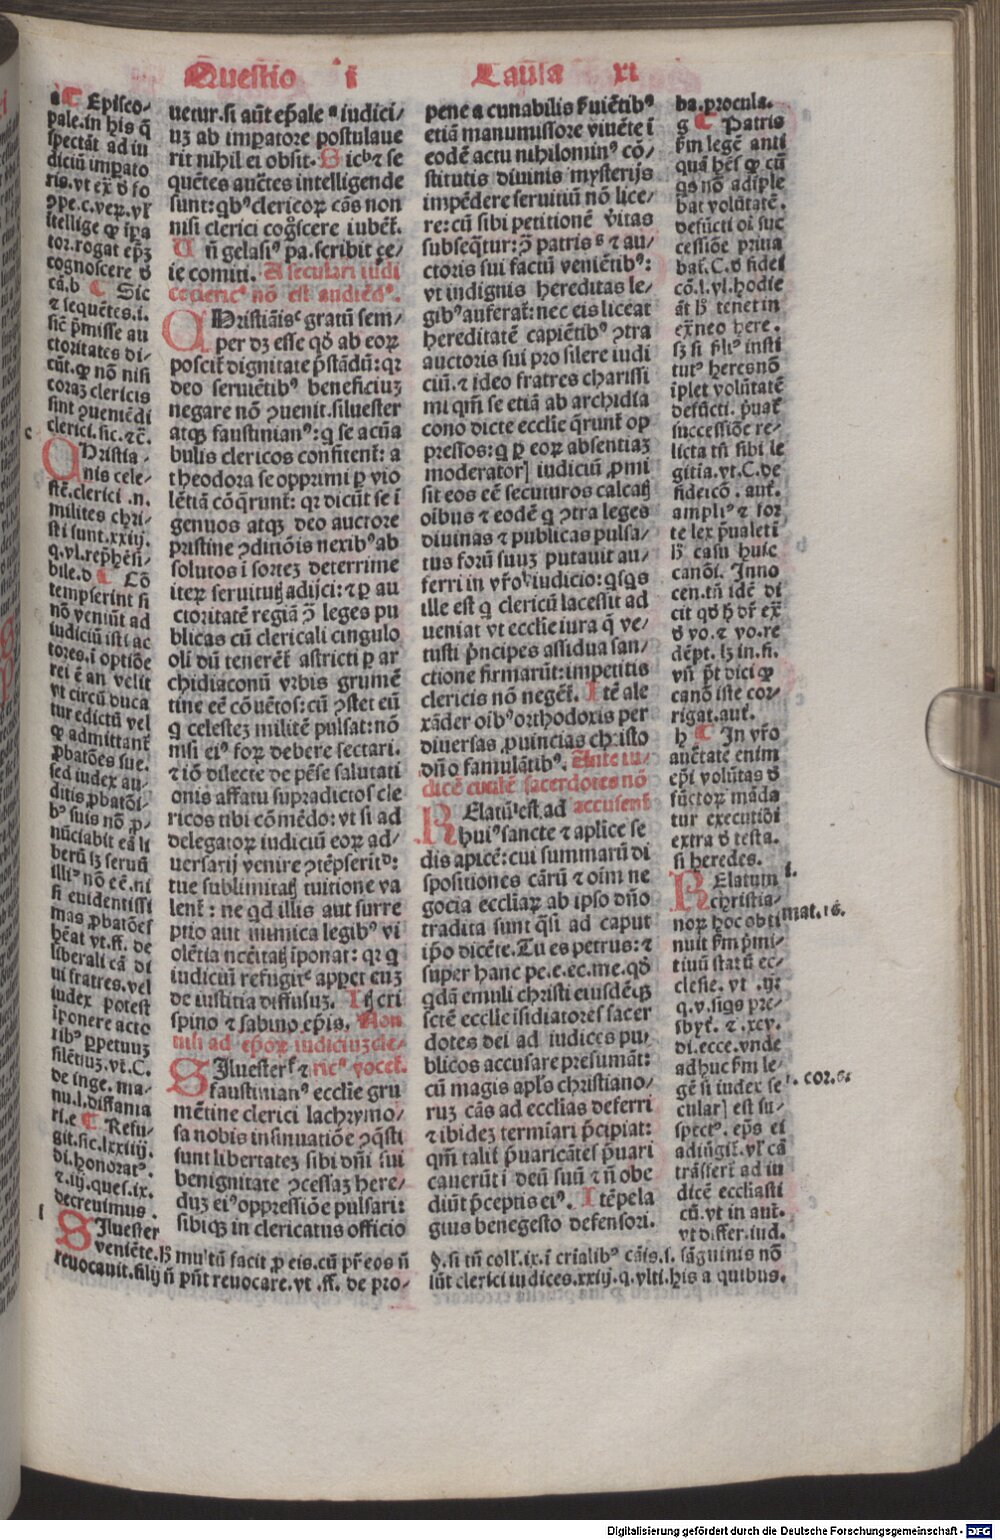 Questio i Causa xi
a ¶ Episco-
pale. in his q̄
spectāt ad iu
diciū imꝑato
ris. vt ex̄ ð fo
ꝯpe. c. veꝝ. vł
ītellige ꝙ īpa
tor. rogat ep̄ꝫ
cognoscere ð
cā. b ¶ Sic
⁊ sequētes. i.
sic p̄misse au
ctoritates di-
cūt. ꝙ nō nisi
coraꝫ clericis
sint ꝯueniēdi
clerici. sic. ⁊ c̄.
c
CHristia-
nis cele-
stē. clerici .n.
milites chri-
sti sunt. xxiij.
q. vl. rep̄hēsi-
bile. d ¶ Cō
tempserint si
nō veniūt ad
iudiciū isti ac
tores. ī optiōe
rei ē an velit
vt circū duca
tur edictū vel
ꝙ admittant̄
ꝓbatōes sue.
sed iudex au-
ditis ꝓbatōi-
bꝰ suis nō ꝓ-
nūciabit eā li
berū sꝫ seruū
illiꝰ nō eē. ni
si euidentissi
mas ꝓbatōes
hēat vt. ff. de
liberali cā di
ui fratres. vel
iudex potest
īponere acto
ribꝰ ꝑpetuuꝫ
silētiuꝫ. vt. C.
de inge. ma-
nu. l. diffama
ri. e ¶ Refu-
git. sic. lxxiiij.
di. honoratꝰ.
⁊. iij. ques. ix.
decreuimus.
f
SIluester
veniēte. hꝫ multū facit ꝓ eis. cū pr̄ eos n̄
reuocauit. filij n̄ pn̄t reuocare. vt .ff. de pro-
uetur. si aūt ep̄ale ᵃ iudici/
uꝫ ab imꝑatore postulaue
rit nihil ei obsit. Sic ᵇ ⁊ se
quētes auc̄tes intelligende
sunt: qbꝰ clericoꝝ cās non
nisi clerici cog̊scere iubēt.
Un̄ gelasiꝰ pa. scribit ce/
ie comiti. A seculari iudi
ce clericꝰ nō est audiēdꝰ.
CHristiāis ᶜ gratū sem/
per dꝫ esse qd̄ ab eoꝝ
poscit̄ dignitate p̄stādū: qꝛ
deo seruiētibꝰ beneficiuꝫ
negare nō ꝯuenit. siluester
atqꝫ faustinianꝰ: q̄ se acūa
bulis clericos confitent̄: a
theodora se opprimi ꝑ vio
lētiā cōq̄runt̄: qꝛ dicūt se i
genuos atqꝫ deo auctore
pristine ꝯditiōis nexibꝰ ab
solutos ī sorteꝫ deterrime
iteꝝ seruitutꝭ adijci: ⁊ ꝑ au
ctoritatē regiā ꝯ̄ leges pu
blicas cū clericali cingulo
oli dū tenerēt̄ astricti ꝑ ar
chidiaconū vrbis grumē
tine eē cōuētos: cū ꝯstet eū
q̄ celesteꝫ militē pulsat: nō
nisi eiꝰ foꝝ debere sectari.
⁊ iō dilecte de pn̄se salutati
onis affatu supradictos cle
ricos tibi cōmēdo: vt si ad
delegatoꝝ iudiciū eoꝝ ad/
uersarij venire ꝯtēpserit ᵈ:
tue sublimitatꝭ tuitione va
lent̄: ne qd illis aut surre
ptio aut inimica legibꝰ vi
olētia nec̄itatꝭ īponat: qꝛ q̄
iudiciū refugit ᵉ appꝫ et euꝫ
de iustitia diffisuꝫ. Itꝭ cri
spino ⁊ sabino ep̄is. Non
nisi ad ep̄oꝝ iudiciuꝫ cle/
SIluester ᶠ ⁊ ricꝰ vocet̄.
faustinianꝰ ecclie gru
mētine clerici lachrymo/
sa nobis insinuatiōe ꝯq̄sti
sunt libertateꝫ sibi dn̄i sui
benignitate ꝯcessaꝫ here/
duꝫ eiꝰ oppressiōe pulsari:
sibiqꝫ in clericatus officio
pene a cunabilis s̄uiētibꝰ
etiā manumissore viuēte ī
eodē actu nihilominꝰ cō/
stitutis diuinis mysterijs
impēdere seruitiū nō lice/
re: cū sibi petitionē v̄itas
subseq̄tur: ꝯ̄ patris ᵍ ⁊ au/
ctoris sui factū veniētibꝰ:
vt indignis hereditas le/
gibꝰ auferat̄: nec eis liceat
hereditatē capiētibꝰ ꝯtra
auctoris sui pro silere iudi
ciū. ⁊ ideo fratres charissi
mi qm̄ se etiā ab archidia
cono dicte ecclie q̄runt̄ op
pressos: q̄ ꝑ eoꝝ absentiaꝫ
moderatorꝭ iudiciū ꝓmi
sit eos eē secuturos calcatꝭ
oībus ⁊ eodē q̄ ꝯtra leges
diuinas ⁊ publicas pulsa/
tus forū suuꝫ putauit au/
ferri in vr̄o ʰ iudicio: q̄sq̄s
ille est q̄ clericū lacessit ad
ueniat vt ecclie iura q̄ ve/
tusti p̄ncipes assidua san/
ctione firmarūt: impetitis
clericis nō negēt̄. Itē ale
xāder oībꝰ orthodoxis per
diuersas ꝓuincias christo
dn̄o famulātibꝰ. Ante iu-
dicē ciuilē sacerdotes nō
RElatū ⁱ est ad accusent̄
huiꝰ sancte ⁊ aplice se
dis apicē: cui summarū di
spositiones cārū ⁊ oīm ne
gocia eccliaꝝ ab ipso dn̄o
tradita sunt q̄si ad caput
ip̄o dicēte. Tu es petrus: ⁊
super hanc pe. e. ec. me. qd̄
q̄dā emuli christi eiusdēqꝫ
sctē ecclie īsidiatores sacer
dotes dei ad iudices pu/
blicos accusare presumāt:
cū magis apl̄s christiano/
ruꝫ cās ad ecclias deferri
⁊ ibideꝫ termīari p̄cipiat:
qm̄ talit̄ p̄uaricātes p̄uari
cauerūt ī deū suū ⁊ n̄ obe
diūt p̄ceptis eiꝰ. Itē pela
gius benegesto defensori.
ba. procula.
g ¶ Patris
s̄m legē anti
quā hēs ꝙ cū
q̄s nō adiple
bat volūtatē.
defūcti oī suc
cessiōe priua
bat̄. C. ð fidei
cō. l. vl. hodie
āt hꝰ tenet in
ex̄neo here.
sꝫ si filiꝰ insti
tutꝰ heres nō
īplet volūtatē
defūcti. p̄uat̄
successiōe re/
licta tn̄ sibi le
gitia. vt. C. de
fideicō. aut̄.
ampliꝰ ⁊ for
te lex p̄ualeti
hꝰ casu huic
canōi. Inno
cen. tn̄ idē di
cit qd̄ h̄ dr̄ ex̄
ð vo. ⁊ vo. re
dēpt. lꝫ in. fi.
vn̄ pt̄ dici ꝙ
canō iste cor/
rigat. aut̄.
h ¶ In vr̄o
auc̄tate enim
ep̄i volūtas ð
fūctoꝝ māda
tur executiōi
extra ð testa.
si heredes.
i.
RElatum
christia-
noꝝ hoc obti mat. 18.
nuit s̄m p̄mi/
tiuū statū ec-
clesie. vt. ij.
q. v. si q̄s pre-
sbyt̄. ⁊. xcv.
di. ecce. vnde
ad huc s̄m le-
gē si iudex se 1. cor. 6.
cularꝭ est su-
spectꝰ. ep̄s ei
adiūgit̄. vł cā
trāsfert̄ ad iu
dicē eccliasti
cū. vt in aut̄.
vt differ. iud.
§. si tn̄ coll. ix. ī crīalibꝰ cāis. s. sāguinis nō
sūt clerici iudices. xxiij. q. vlti. his a quibus.
Digitalisierung gefördert durch die Deutsche Forschungsgemeinschaft - DFG